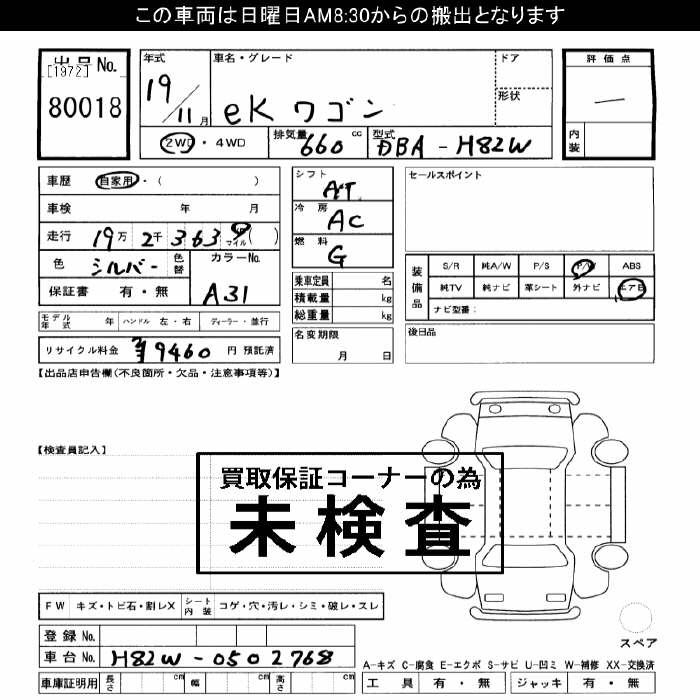 この車両は日曜日AM8:30からの搬出となります
出品No.
[1972]
80018
年式
19/11月
車名・グレード
eKワゴン
ドア
形状
2WD・4WD
排気量 660 cc
型式 DBA-H82W
評価点
―
内装
車歴 自家用・( )
車検 年 月
走行 19万 2千 3 6 3 9 マイル( )
色 シルバー 色替
カラーNo. A31
保証書 有・無
シフト AT
冷房 AC
燃料 G
乗車定員 名
積載量 kg
総重量 kg
名変期限 月 日
セールスポイント
装備品
S/R 純A/W P/S P/W ABS
純TV 純ナビ 革シート 外ナビ エアB
ナビ型番:
後日品
モデル年式 年 ハンドル 左・右 ディーラー・並行
リサイクル料金 ¥9460 円 預託済
【出品店申告欄(不良箇所・欠品・注意事項等)】
【検査員記入】
買取保証コーナーの為
未検査
FW キズ・トビ石・割レX シート内装 コゲ・穴・汚レ・シミ・破レ・スレ
登録No.
車台No. H82W-0502768
車庫証明用 長さ cm 幅 cm 高さ cm
スペア
A-キズ C-腐食 E-エクボ S-サビ U-凹ミ W-補修 XX-交換済
工具 有・無 ジャッキ 有・無